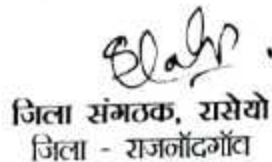 जिला संगठक, रासेयो
जिला - राजनॉंदगॉंव